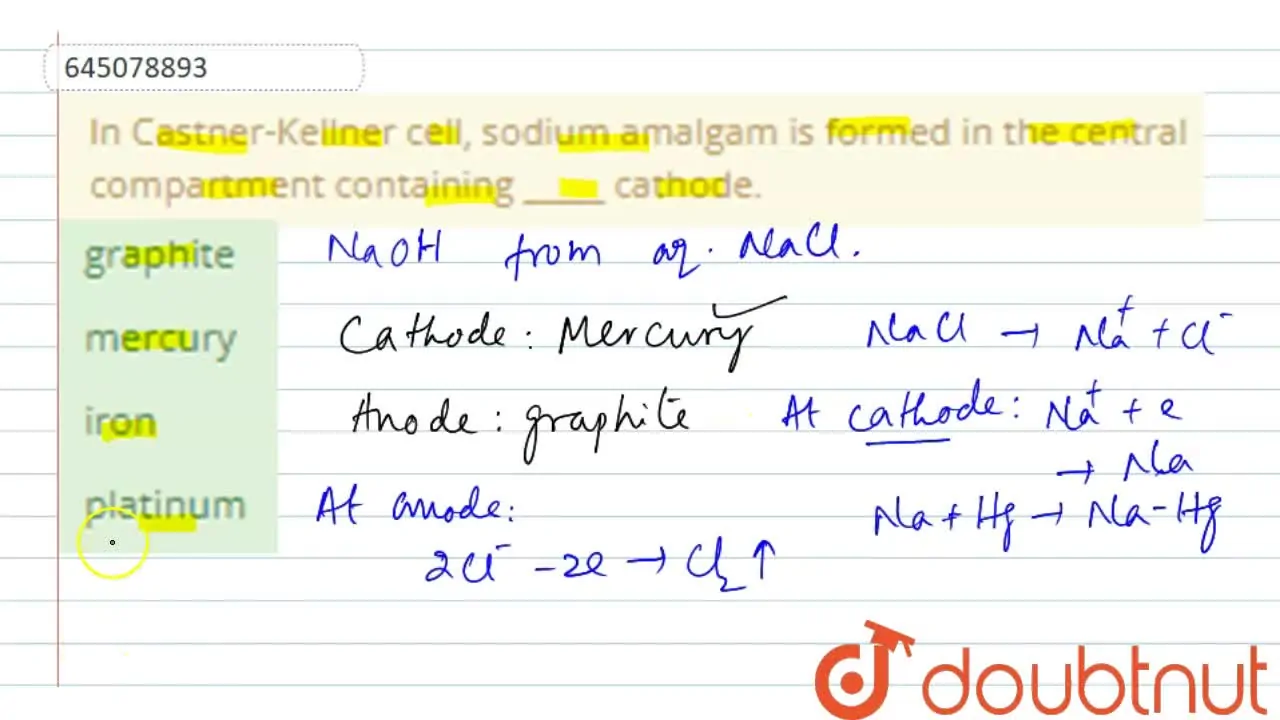 645078893
In Castner-Kellner cell, sodium amalgam is formed in the central
compartment containing _____ cathode.
graphite
NaOH from aq. NaCl.
mercury
Cathode : Mercury
NaCl → Na⁺ + Cl⁻
iron
Anode : graphite
At cathode : Na⁺ + e
→ Na
platinum
At anode :
Na + Hg → Na-Hg
2Cl⁻ - 2e → Cl₂ ↑
doubtnut